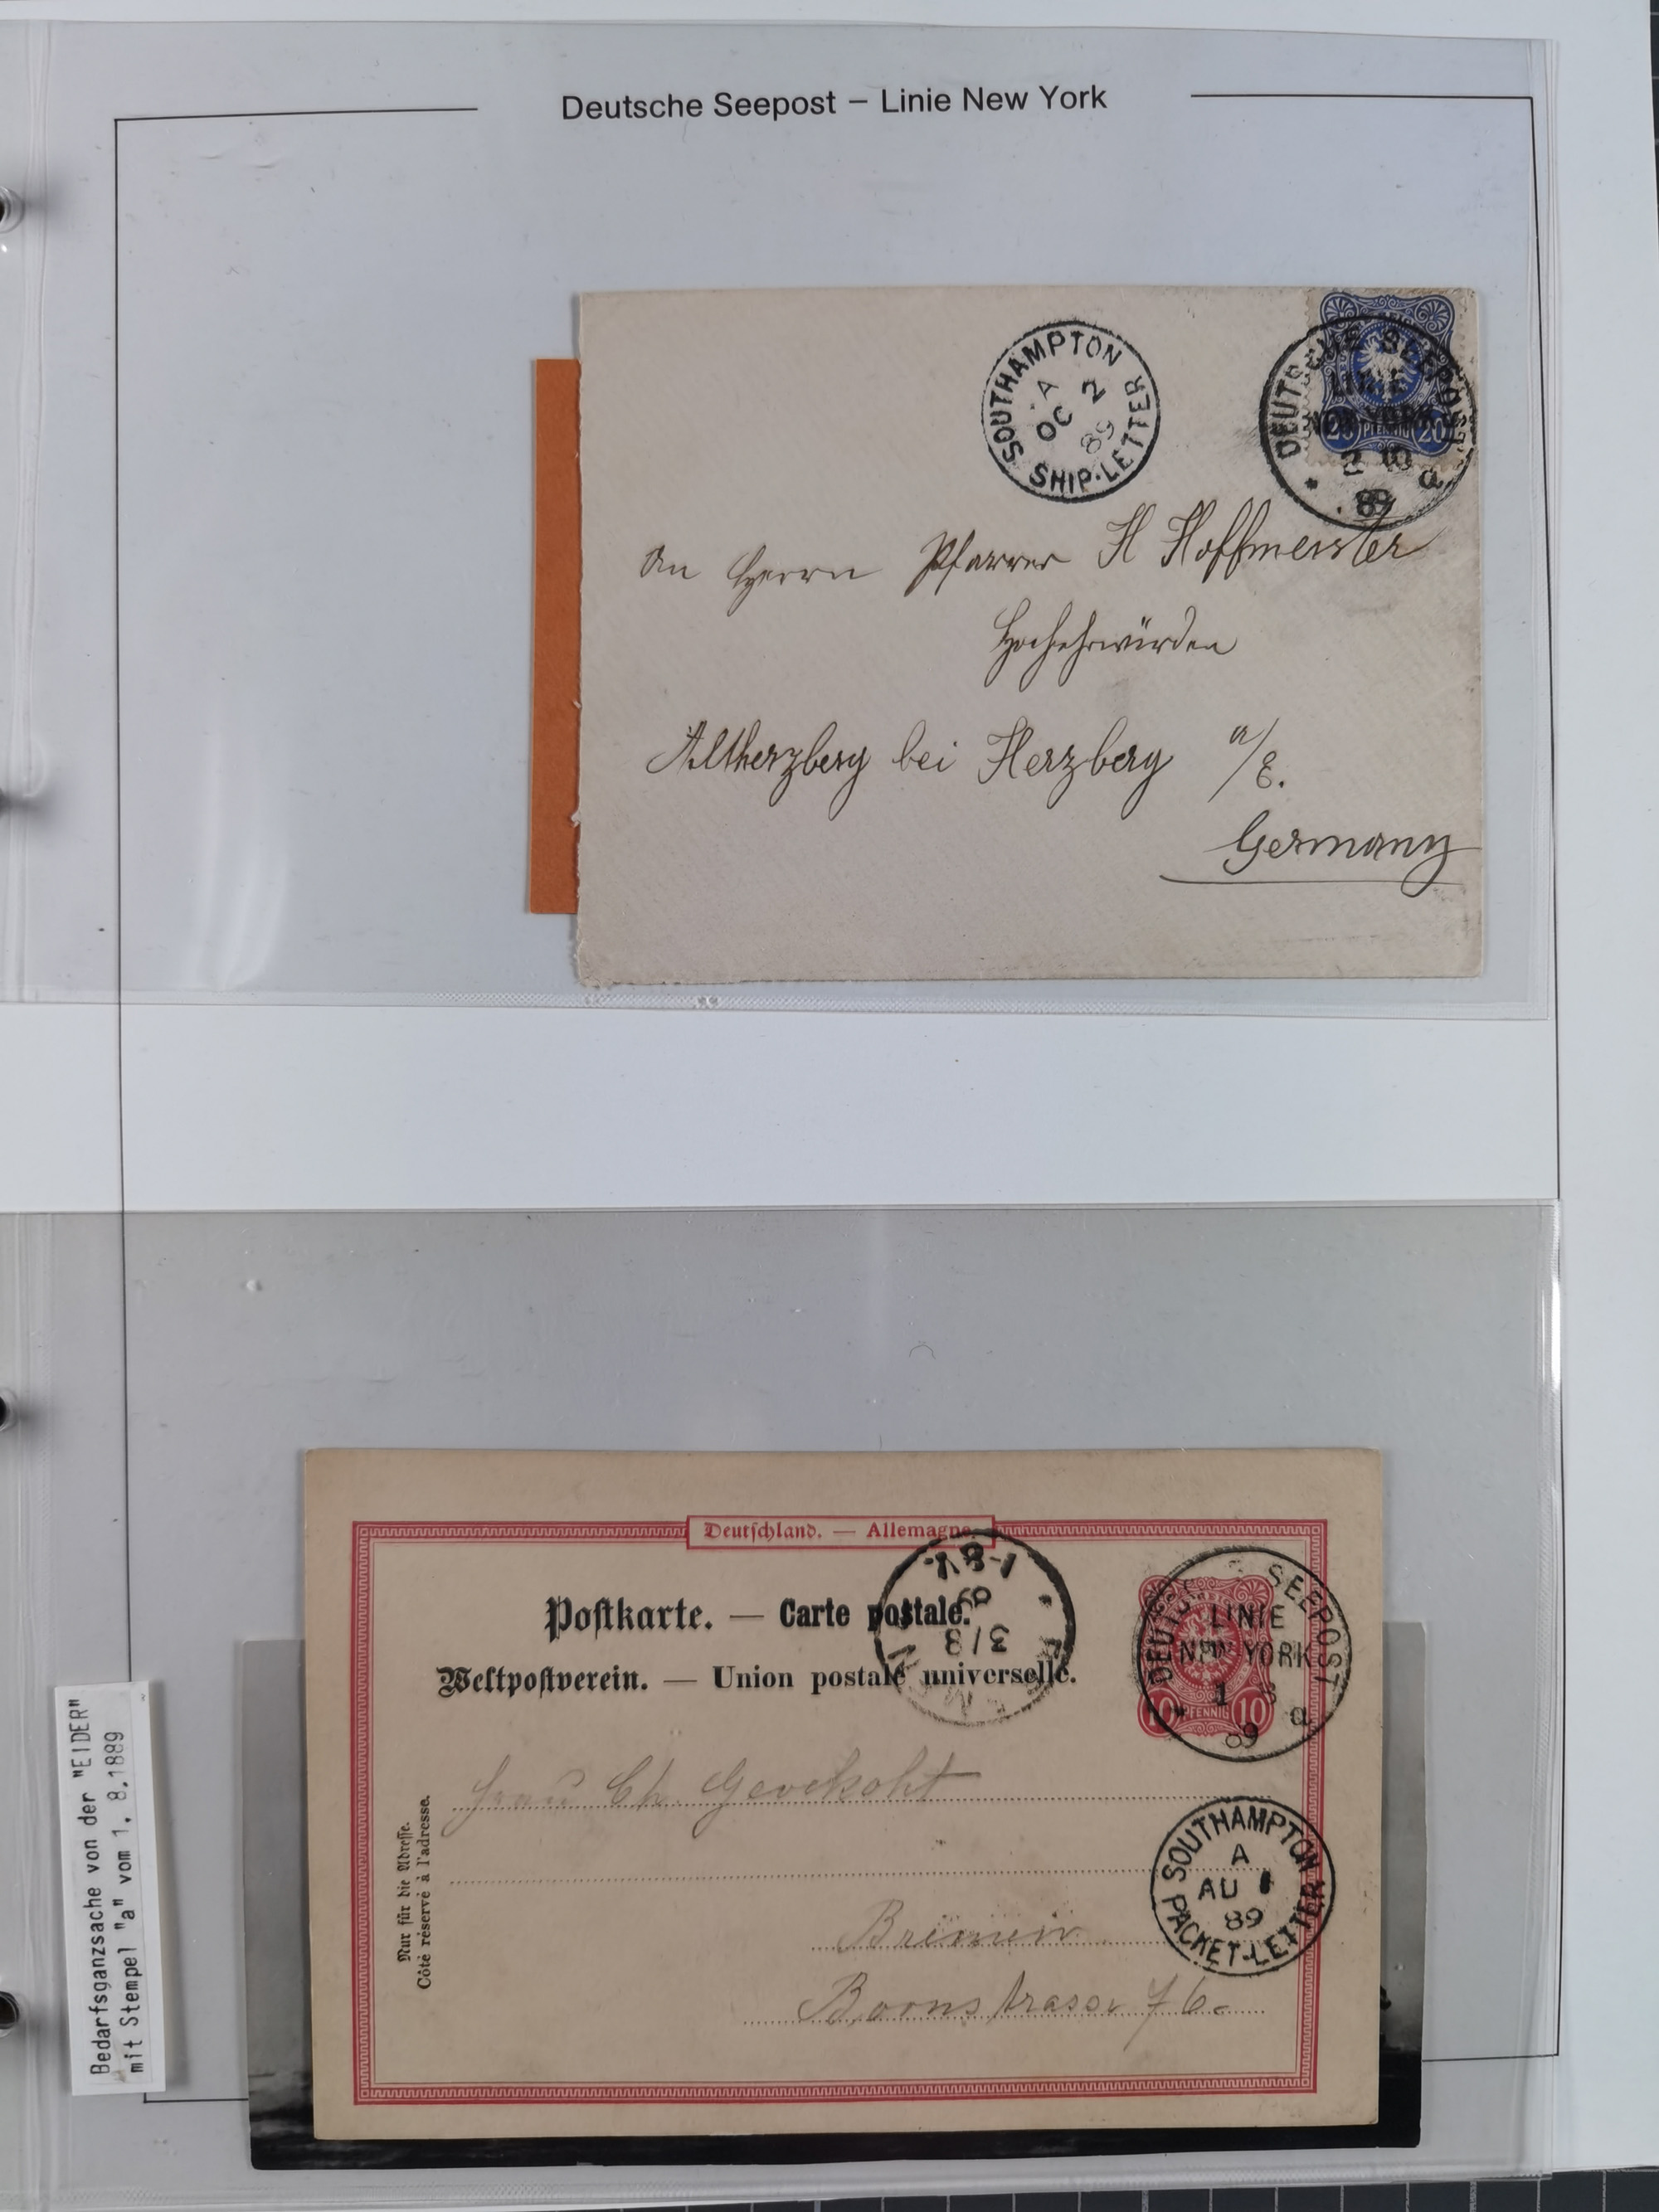 Deutsche Seepost – Linie New York
SOUTHAMPTON
A
OC 2
89
SHIP-LETTER
DEUTSCHE SEEPOST
LINIE
NEW YORK
2 10
* 89 a
20 PFENNIG 20
An Herrn Pfarrer H Hoffmeister
Hochehrwürden
Altherzberg bei Herzberg a/E.
Germany
Deutschland. — Allemagne.
Postkarte. — Carte postale.
Weltpostverein. — Union postale universelle.
1-8V.
89
3/8
DEUTSCHE SEEPOST
LINIE
NEW YORK
1 8
* 89 a
10 PFENNIG 10
Frau Ch. Gevekoht
SOUTHAMPTON
A
AU 1
89
PACKET-LETTER
Bremen
Nur für die Adresse.
Côté réservé à l'adresse.
Bedarfsganzsache von der "EIDER"
mit Stempel "a" vom 1. 8.1889